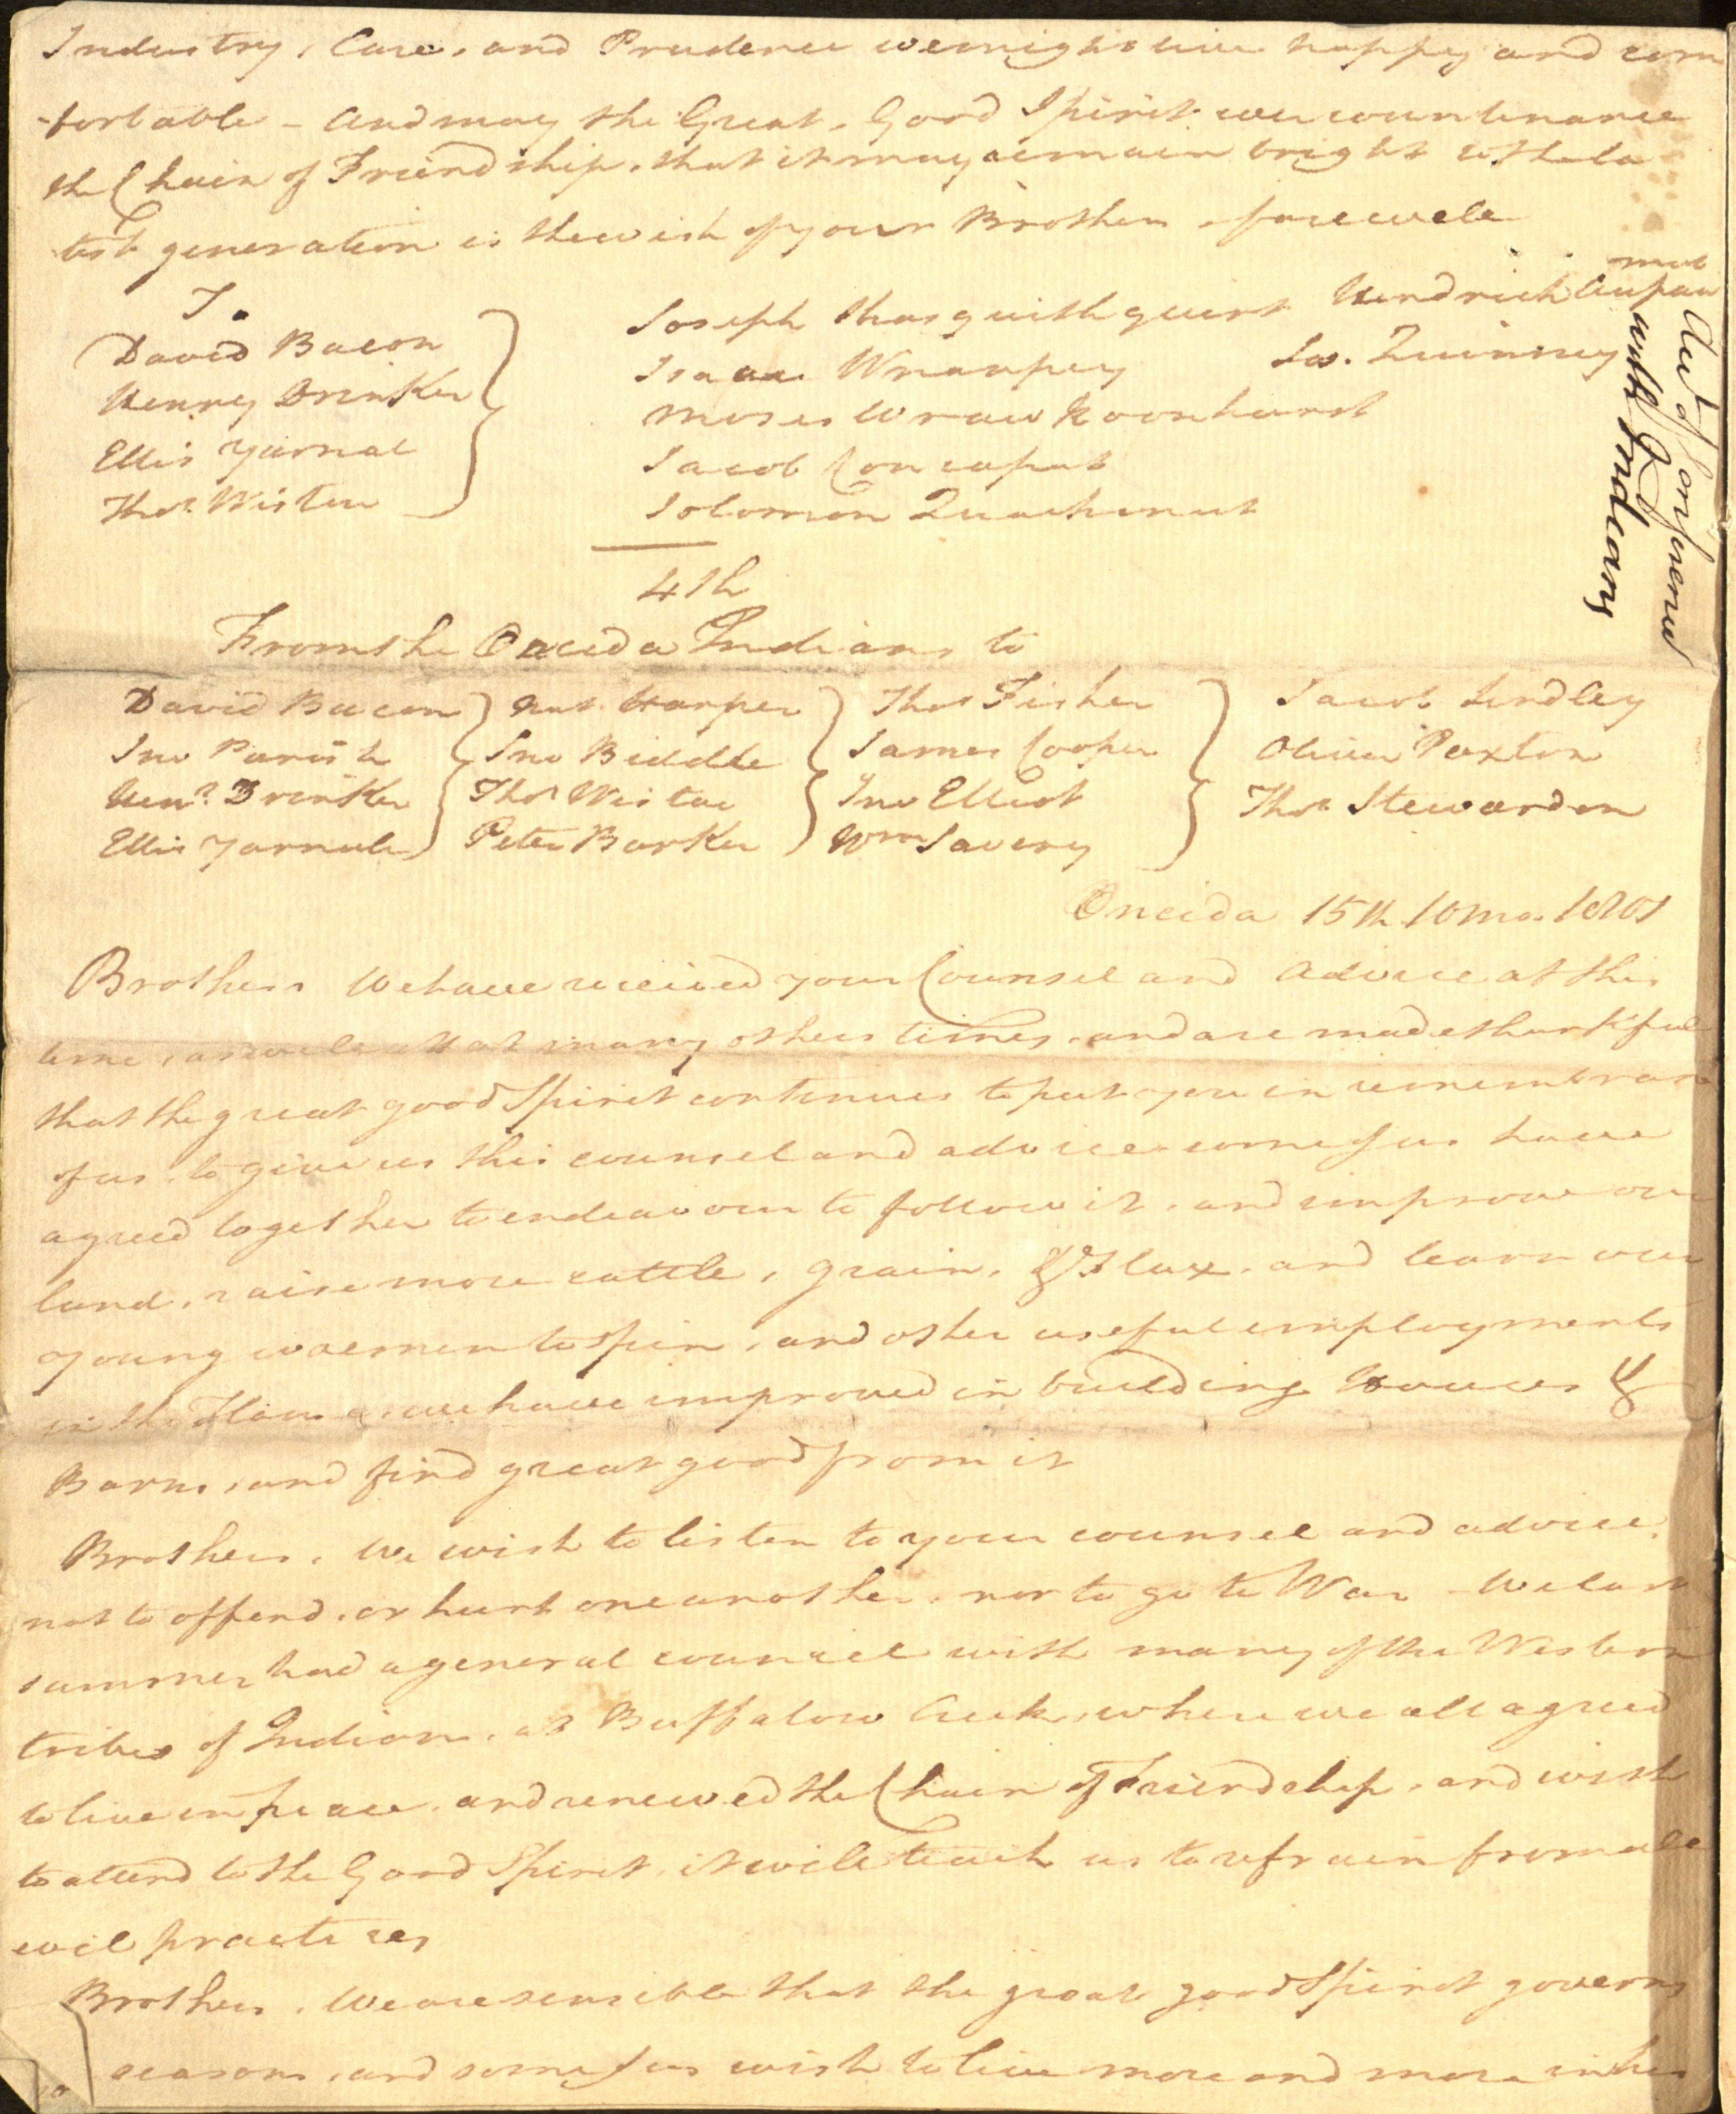 Industry, Care, and Prudence we might live happy and com
-fortable - And may the Great, Good Spirit ever countenance
the Chain of Friendship, that it may remain bright to the la
test generation is the wish of your Brothers, farewell
To
David Bacon
Henry Drinker
Ellis Yarnal
Thos. Wistar
Joseph Hendrick Aupau
mut
Isaac Jos. Quinney
Moses
Jacob Concaput
Solomon Quachmut
Act. of Conferences
with Indians
4th
From the Oneida Indians to
David Bacon Nat. Harper Thos Fisher Jacob Lindley
Jno Parish Jno Biddle James Cooper Oliver Paxton
Heny. Drinker Thos Wistar Jno Elliot Thos Stewardson
Ellis Yarnule Peter Barker Wm Savery
Oneida 15th 10mo. 1801
Brothers We have received your Counsel and Advice at this
time, as well as at many others times, and are made thankful
that the great good Spirit continues to put you in remembran
of us, to give us this counsel and advice some of us have
agreed together to endeavour to follow it, and improve our
land, raise more cattle, grain, & Flax, and learn our
young woemen to spin, and other useful employments
in the House, we have improved in building Houses &
Barns, and find great good from it
Brothers, We wish to listen to your counsel and advice,
not to offend, or hurt one another, nor to go to War - We last
summer had a general council with many of the Western
tribes of Indians, at Buffalow Creek, where we all agreed
to live in peace, and renewed the Chain of Friendship, and wish
to attend to the Good Spirit, it will teach us to refrain from all
evil practices
Brothers, We are sensible that the great good Spirit governs
seasons, and some of us wish to live more and more in his